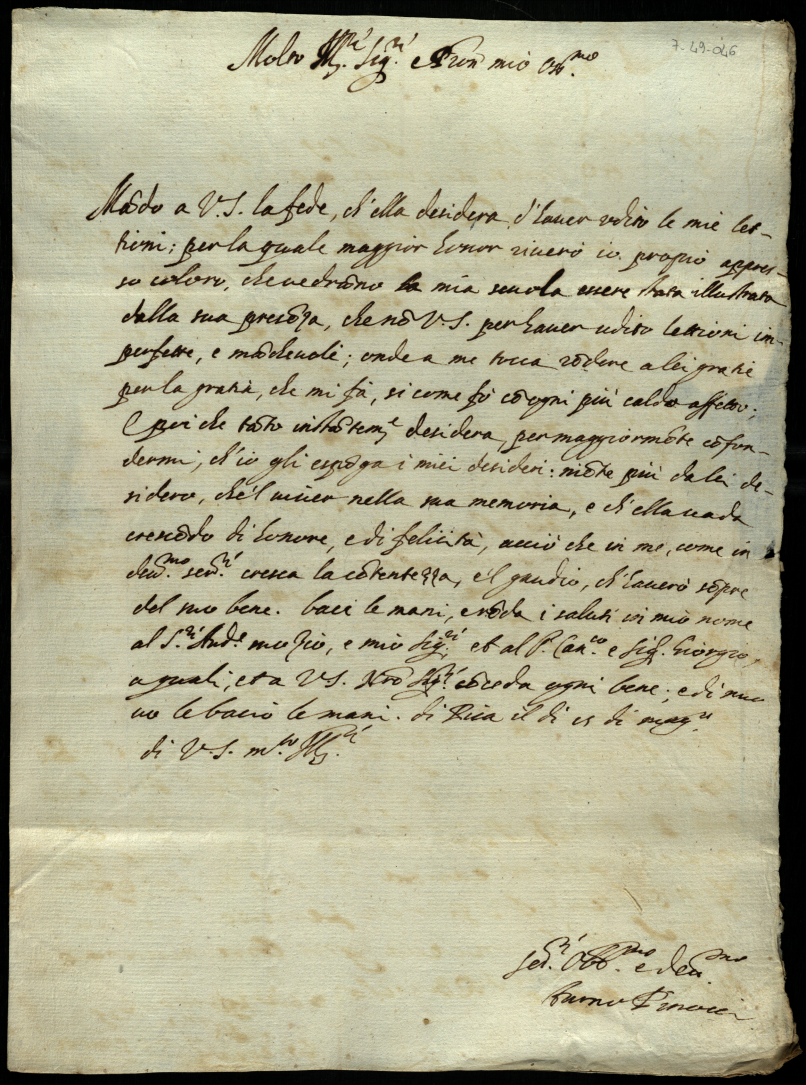 7-49-046
Molto Ill.re Sig.re e Pron mio Oss.mo
Mãdo a V.S. la fede, ch'ella desidera d'haver udito le mie let-
tioni; per la quale maggior honor riceverò io proprio appres-
so coloro, che vedrãno la mia scuola essere stata illustrata
dalla sua presẽza, che nõ V.S. per haver udito lettioni im-
perfette, e mãchevoli; onde a me tocca rẽdere a lei gratie
per la gratia, che mi fà, si come fò cõ ogni più caldo affetto;
E poi che tãto instãtem.e desidera, per maggiormẽte cõfon-
dermi, ch'io gli espõga i miei desideri: niẽte più da lei de-
sidero, che'l viver nella sua memoria, e ch'ella vada
crescẽdo di honore, e di felicità, acciò che in me, come in
dev.mo ser.re cresca la cõtentezza, e'l gaudio, ch'haverò sẽpre
del suo bene. baci le mani, e rẽda i saluti in mio nome
al S.re And.a e mio Sig.re, et al P. Can.co e Sig. Giorgio,
a quali, et a V.S. Nro Sig.re cõceda ogni bene; e di nuo
vo le bacio le mani. di Pisa il di 15 di mag.o
di V.S. m.to Ill.re
Ser.re Obb.mo e dev.mo